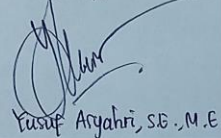 Yusuf Aryahri, S.E., M.E